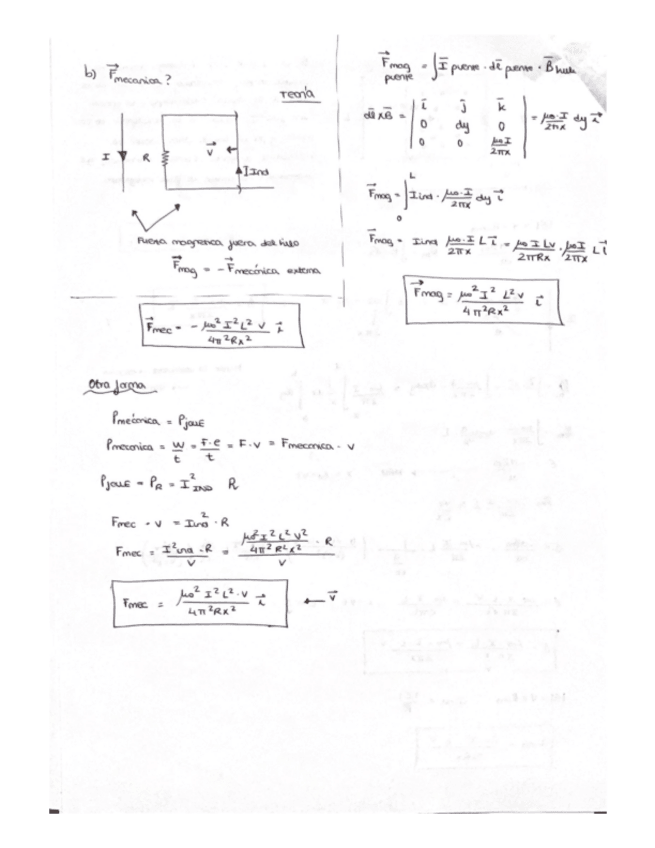 b) F⃗mecanica ?
Teoría
I R v⃗ I Ind
Fuerza magnética fuera del hilo
F⃗mag = - F⃗mecánica externa
F⃗mec = - μo² I² L² v / 4π² R x² i⃗
F⃗mag puente = ∫ I⃗ puente · dl⃗ puente · B⃗ hilo
dl⃗ x B⃗ = | i⃗ j⃗ k⃗ |
| 0 dy 0 | = μo · I / 2πx dy i⃗
| 0 0 μo I / 2πx |
F⃗mag = ∫₀ᴸ I ind · μo · I / 2πx dy i⃗
F⃗mag = I ind μo · I / 2πx L i⃗ = μo I L v / 2πRx · μo I / 2πx L i⃗
F⃗mag = μo² I² L² v / 4π² R x² i⃗
Otra forma
Pmecánica = PjoulE
Pmecanica = W/t = F·e/t = F·v = Fmecanica · v
PjoulE = PR = I²IND R
Fmec · v = Iind² · R
Fmec = I²ind · R / v = (μo² I² L² v² / 4π² R² x²) · R / v
Fmec = μo² I² L² · v / 4π² R x² i⃗ ← v⃗